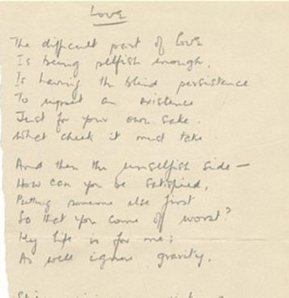 Love
The difficult part of love
Is being selfish enough,
Is having the blind persistence
To upset an existence
Just for your own sake.
What cheek it must take.
And then the unselfish side —
How can you be satisfied,
Putting someone else first
So that you come off worst?
My life is for me:
As well ignore gravity.